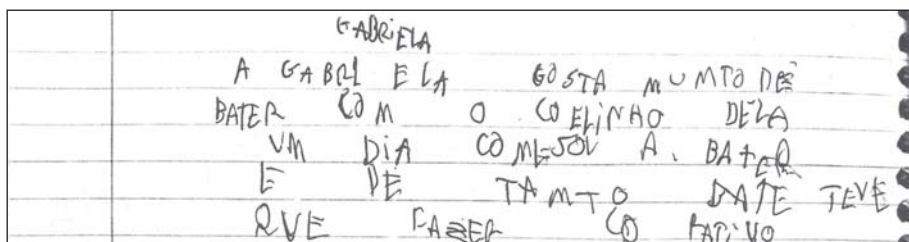 GABRIELA
A GABRI ELA GOSTA MUMTO DE
BATER COM O COELINHO DELA
UM DIA COMESOU A. BATER
E DE TAMTO BATE TEVE
QUE FAZER CO